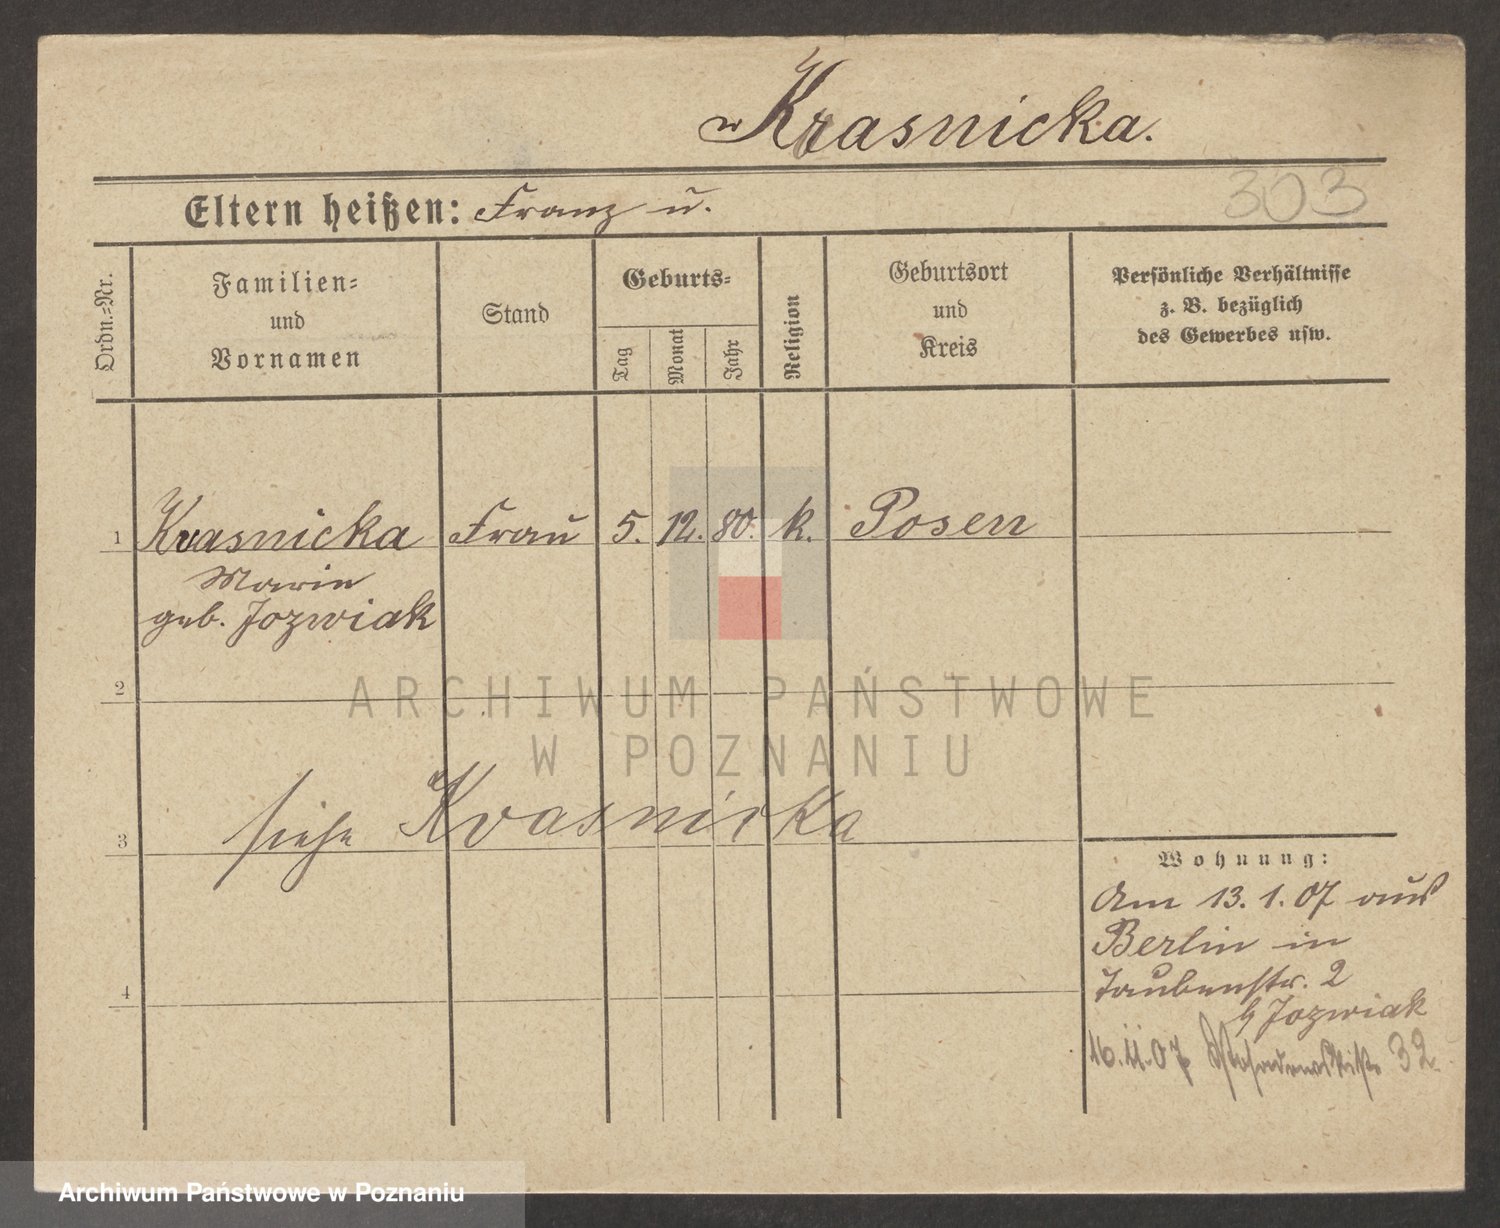 Krasnicka.
303
Eltern heißen: Franz u.
Ordn.=Nr.
Familien=
und
Vornamen
Stand
Geburts=
Tag
Monat
Jahr
Religion
Geburtsort
und
Kreis
Persönliche Verhältnisse
z. B. bezüglich
des Gewerbes usw.
1 Krasnicka Frau 5. 12. 80. k. Posen
Marie
geb. Jozwiak
2
ARCHIWUM PAŃSTWOWE
W POZNANIU
siehe Krasnicka
3
Wohnung:
Am 13. 1. 07 aus
Berlin in
Taubenstr. 2
b/ Jozwiak
4
16.11.07 32
Archiwum Państwowe w Poznaniu